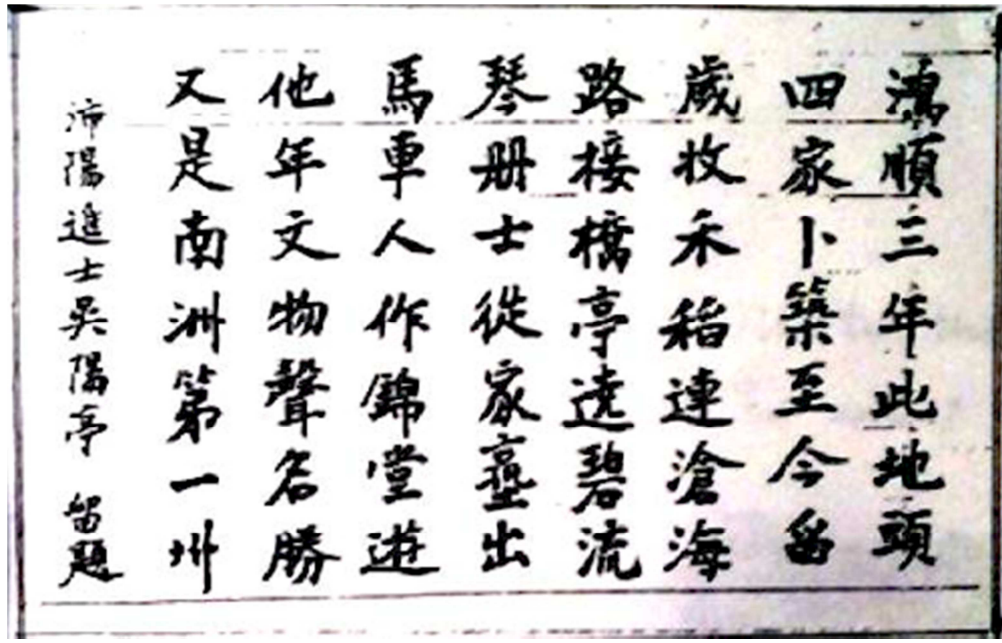 鴻順三年此地頭
四家卜築至今畱
歲收禾稻連滄海
路接橋亭遶碧流
琴册士從家塾出
馬車人作錦堂遊
他年文物聲名勝
又是南洲第一州
沛陽進士吳陽亭 畱題